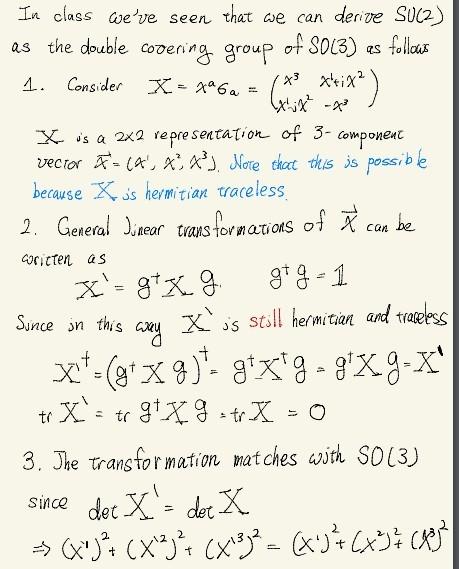 In class we've seen that we can derive SU(2)
as the double covering group of SO(3) as follows
1. Consider X = xᵃσₐ = ( x³ x¹+ix² )
( x¹-ix² -x³ )
X is a 2x2 representation of 3-component
vector x⃗ = (x¹, x², x³). Note that this is possible
because X is hermitian traceless.
2. General linear transformations of x⃗ can be
written as
X' = g†Xg g†g = 1
Since in this way X' is still hermitian and traceless
X'† = (g†Xg)† = g†X†g = g†Xg = X'
tr X' = tr g†Xg = tr X = 0
3. The transformation matches with SO(3)
since det X' = det X
⇒ (x'¹)² + (x'²)² + (x'³)² = (x¹)² + (x²)² + (x³)²